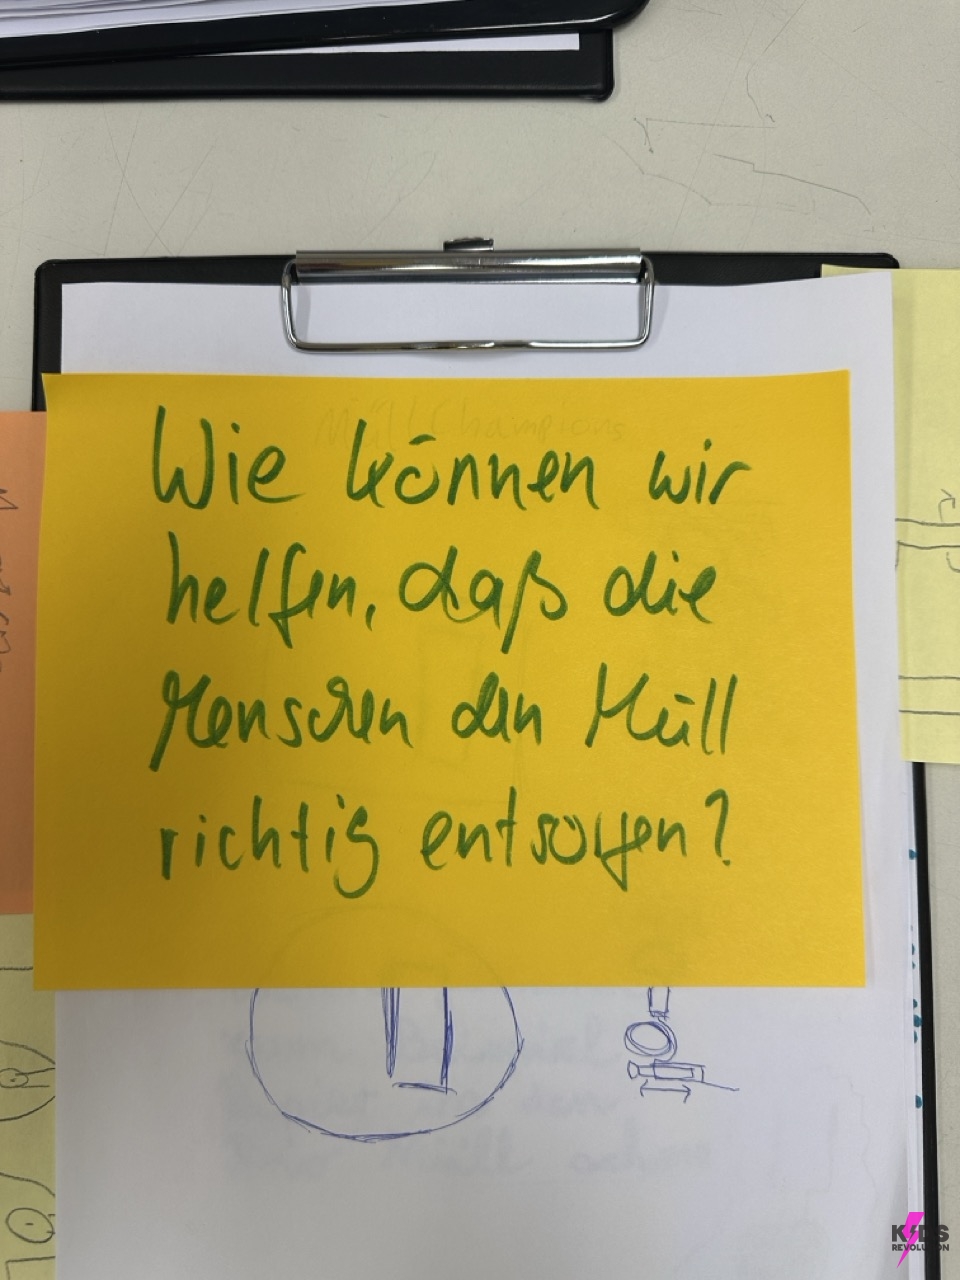 Müll Champions
Wie können wir
helfen, daß die
Menschen den Müll
richtig entsorgen?
KIDS
REVOLUTION